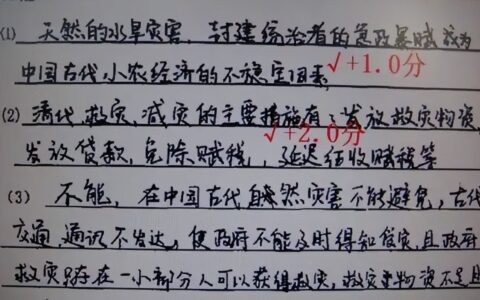 (1) 天然的水旱灾害,封建统治者的急政暴赋成为
中国古代小农经济的不稳定因素
√+1.0分
(2) 清代救灾、减灾的主要措施有:发放救灾物资,
√+2.0分
发放贷款,免除赋税,延迟征收赋税等
(3) 不能,在中国古代自然灾害不能避免,古代
交通、通讯不发达,使政府不能及时得知灾,且政府
救灾只存在一小部分人可以获得救灾,救灾物资不足且